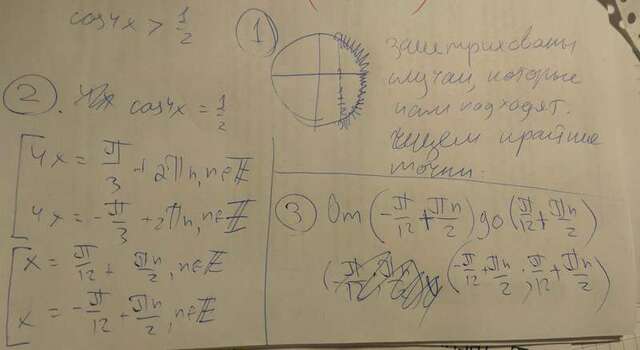 cos4x > 1/2
1
заштрихованы
случаи, которые
нам подходят.
ищем крайние
точки.
2. cos4x = 1/2
4x = π/3 + 2πn, n∈Z
4x = -π/3 + 2πn, n∈Z
x = π/12 + πn/2, n∈Z
x = -π/12 + πn/2, n∈Z
3 От (-π/12 + πn/2) до (π/12 + πn/2)
(-π/12 + πn/2 ; π/12 + πn/2)